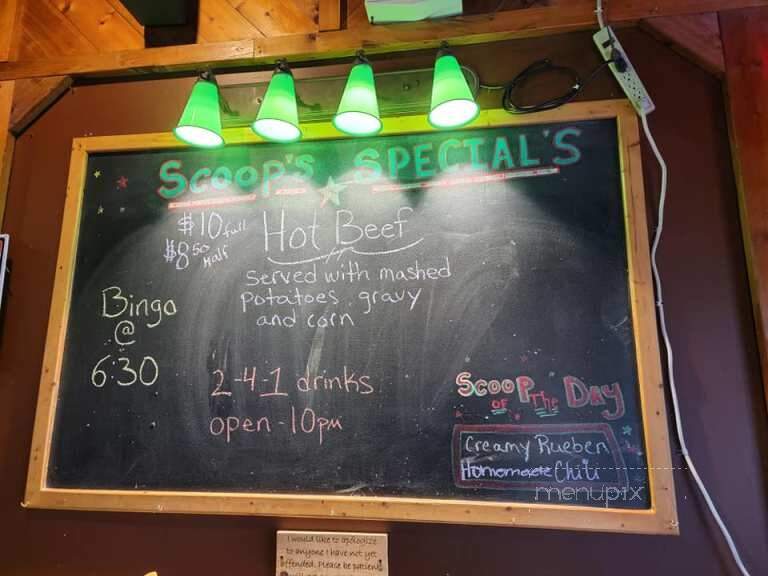 SCOOP'S SPECIAL'S
$10 full
$8 50 Half
Hot Beef
Served with mashed
potatoes, gravy
and corn
Bingo
@
6:30
2-4-1 drinks
open-10pm
SCOOP OF The Day
Creamy Rueben
Homemade Chili
menupix
I would like to apologize
to anyone I have not yet
offended. Please be patient